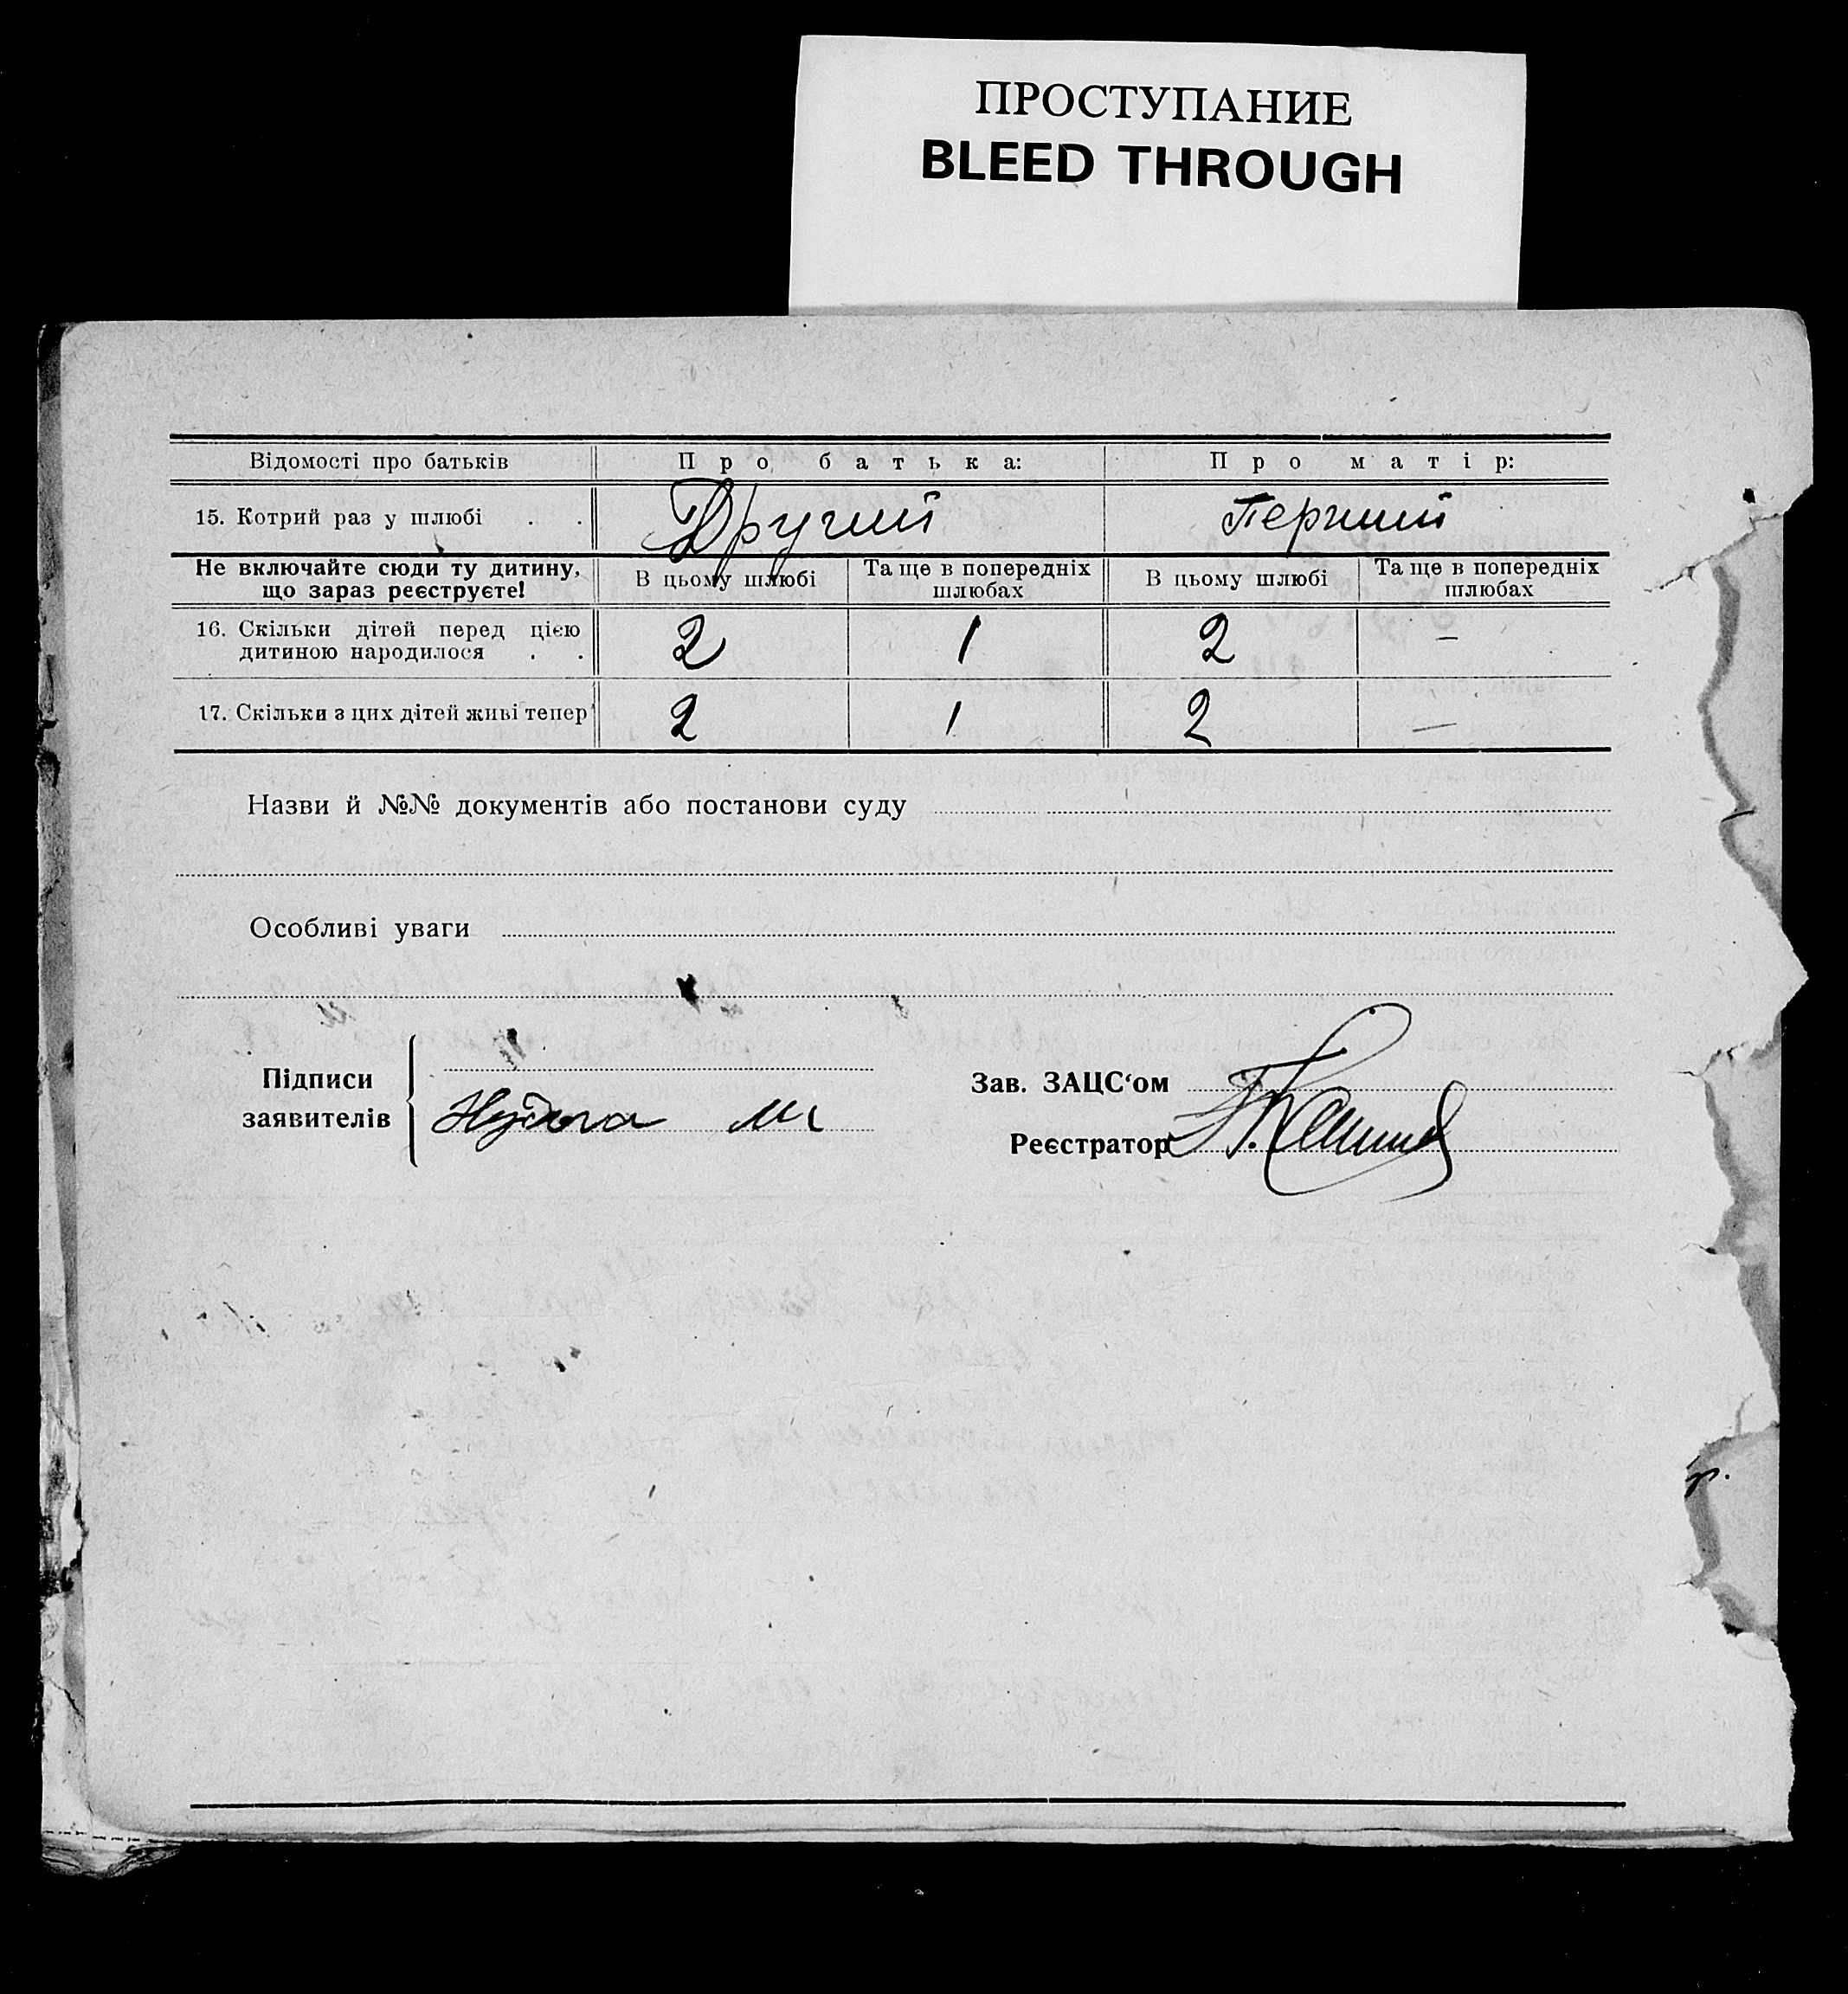 ПРОСТУПАНИЕ
BLEED THROUGH
Відомості про батьків Про батька: Про матір:
15. Котрий раз у шлюбі . . Другий Перший
Не включайте сюди ту дитину, що зараз реєструєте! В цьому шлюбі Та ще в попередніх шлюбах В цьому шлюбі Та ще в попередніх шлюбах
16. Скільки дітей перед цією дитиною народилося . . 2 1 2 —
17. Скільки з цих дітей живі тепер 2 1 2 —
Назви й №№ документів або постанови суду
Особливі уваги
Підписи заявителів
Зав. ЗАЦС‘ом
Реєстратор